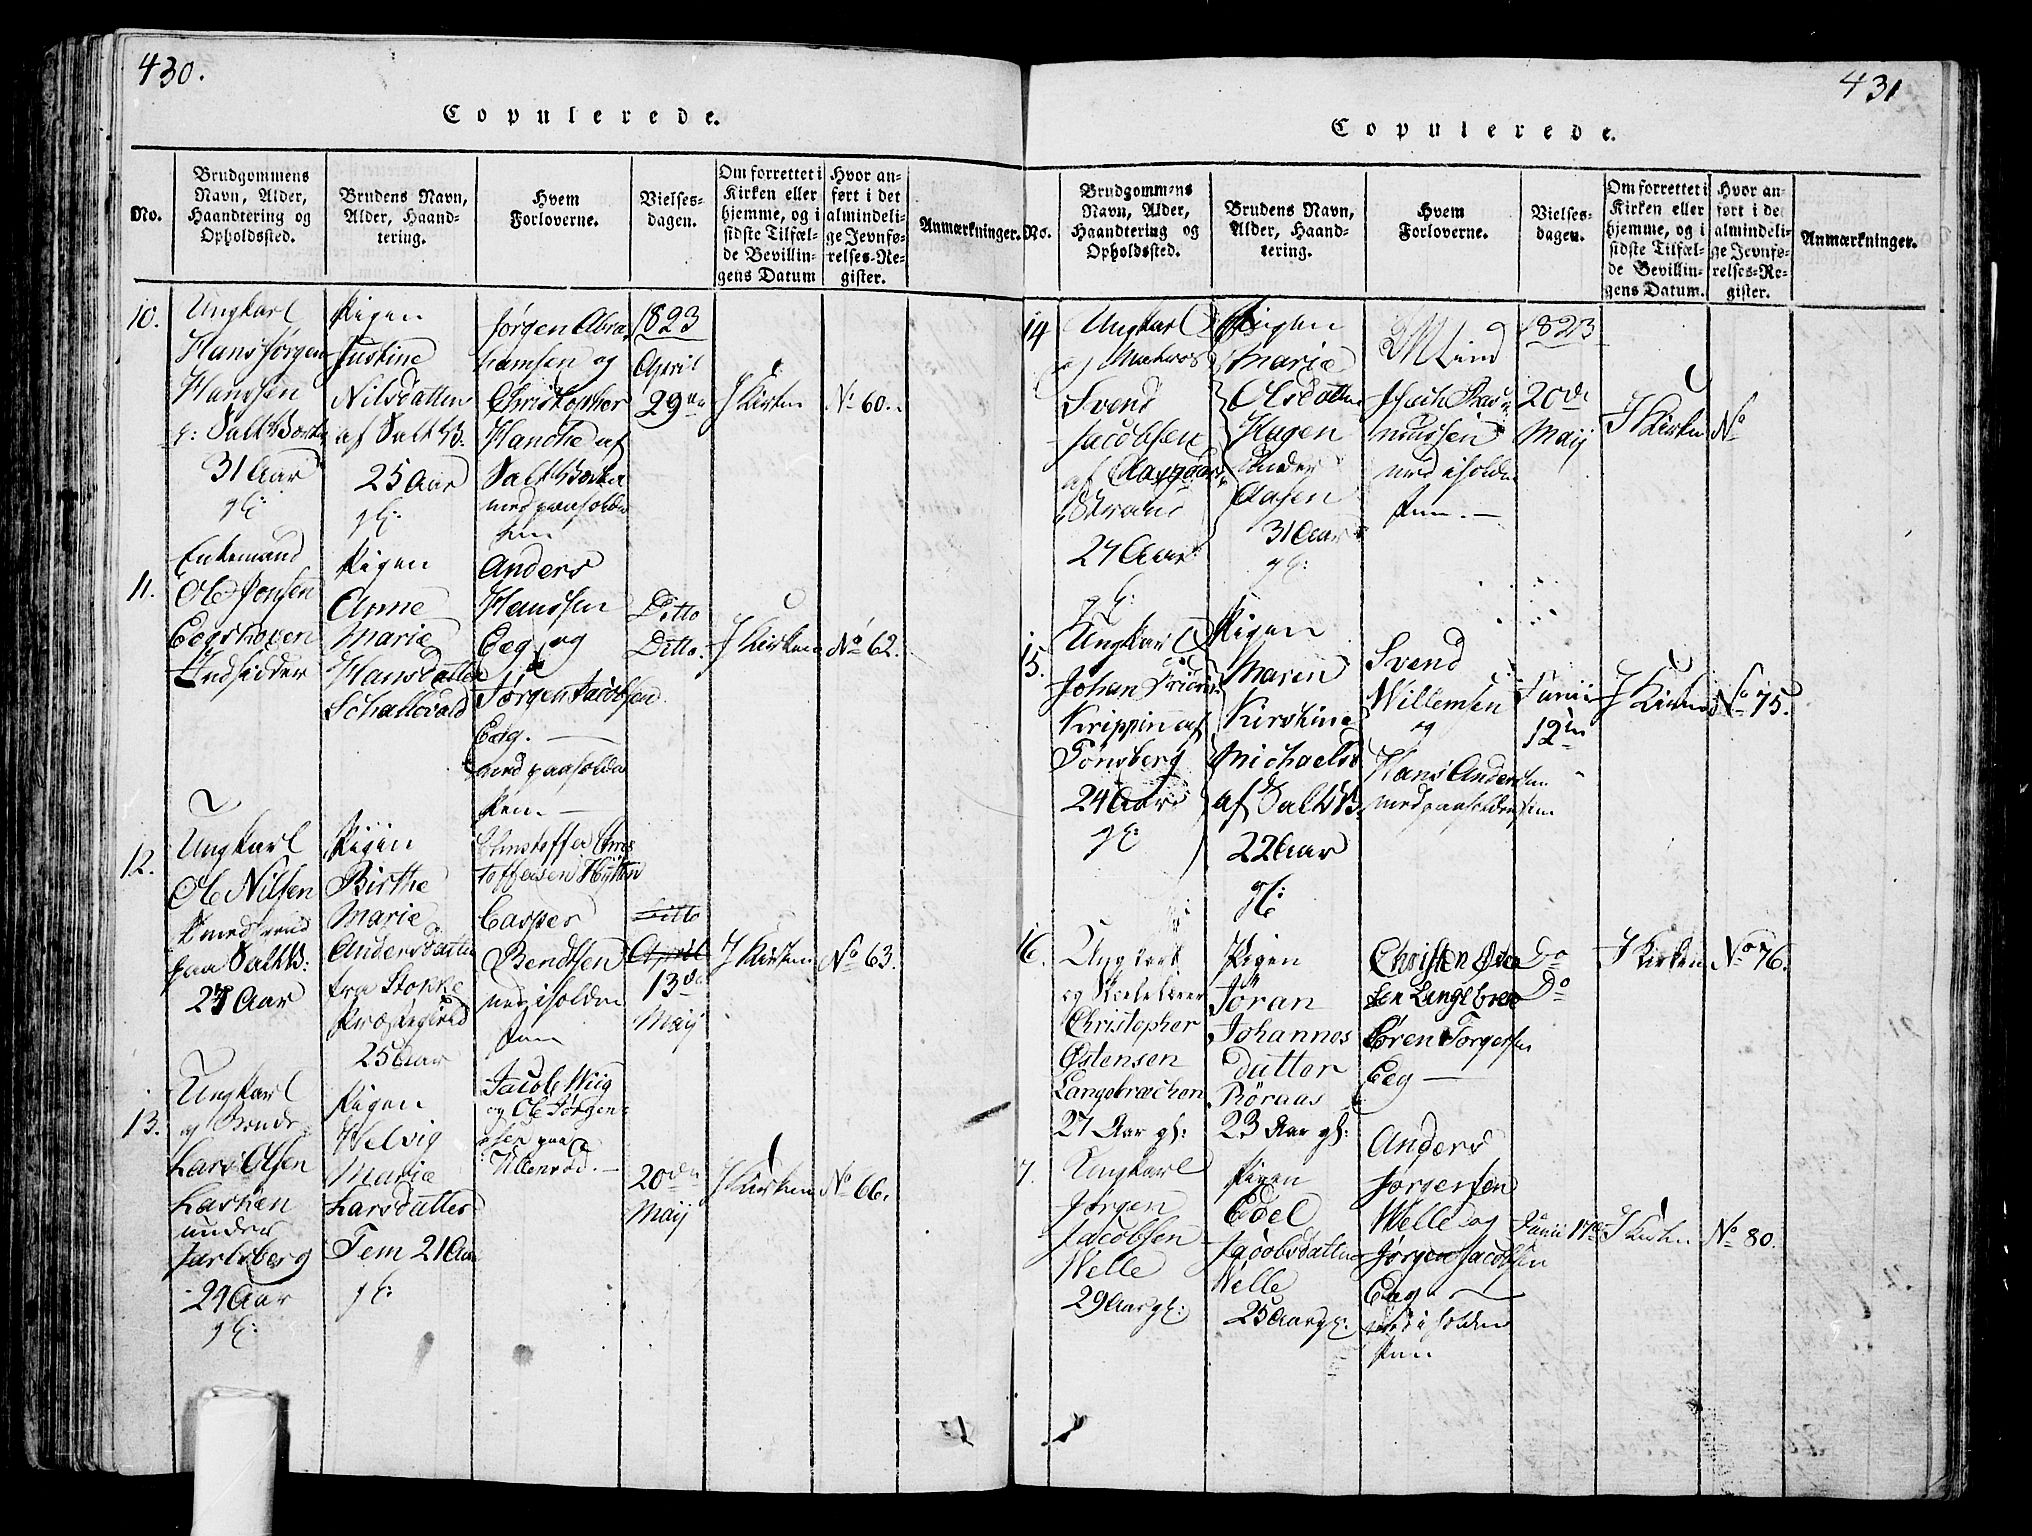 430.
Copulerede.
No.
Brudgommens
Navn, Alder,
Haandtering og
Opholdssted.
Brudens Navn,
Alder, Haand-
tering.
Hvem
Forloverne.
Vielses-
dagen.
Om forrettet i
Kirken eller
hjemme, og i
sidste Tilfæl-
de Bevillin-
gens Datum
Hvor an-
ført i det
almindeli-
ge Jevnfø-
relses-Re-
gister.
Anmærkninger.
10.
Ungkarl
Hans Jørgen
Hansen
31 Aar
gl:
Pigen
Justine
Nilsdatter
af Salt B.
25 Aar
gl:
Jørgen Abra
hamsen og
Christopher
af
med paaholden
Pen
1823
April
29de
I Kirken
No 60.
11.
Enkemand
Ole
Indsidder
Pigen
Anne
Marie
Hansdatter
Anders
Hanssen
Eeg og
Jørgen Jacobsen
Eeg.
med paaholden
Pen.
Ditto
Ditto.
I Kirken
No 62.
12.
Ungkarl
Ole Nilsen
paa Salt B:
Aar
Pigen
Birthe
Marie
Andersdatter
fra Stokke
Præstegield
25 Aar
Casper
Bendtsen
med iholden
Pen
Ditto
April
13de
Maij
I Kirken
No 63.
13.
Ungkarl
og Bonde
Lars Olsen
under
Jarlsberg
Aar
gl:
Pigen
Helvig
Marie
Larsdatter
Tem 21 Aar
gl:
Jacob Wiig
og Ole Jørgen-
sen paa
Ullenrød.
20de
Maij
I Kirken
No 66.
431
Copulerede.
No.
Brudgommens
Navn, Alder,
Haandtering og
Opholdssted.
Brudens Navn,
Alder, Haand-
tering.
Hvem
Forloverne.
Vielses-
dagen.
Om forrettet i
Kirken eller
hjemme, og i
sidste Tilfæl-
de Bevillin-
gens Datum.
Hvor an-
ført i det
almindeli-
ge Jevnfø-
relses-Re-
gister.
Anmærkninger.
14
Ungkarl
og Matros
Svend
Jacobsen
af Aasgaard
Strand
Aar
gl:
Pigen
Marie
Olsdatter
Hagen
under
Aasen
31 Aar
gl:
Lind
med iholden
Pen.
1823
20de
Maij
I Kirken
No
15.
Ungkarl
Johan
Krippin af
Tönsberg
24 Aar
gl:
Pigen
Maren
Kirstine
Michaelsd
af Salt B.
22 Aar
gl:
Svend
Willemsen
og
Hans Andersen
med paaholden Pen
Junii
12te
I Kirken
No 75.
16.
Ungkarl
og
Christopher
Östensen
Langebrechen
27 Aar gl:
Pigen
Jöran
Johannes
dutter
Röraas
23 Aar gl:
Christen
sen Langebrec
Sören Torgersen
Eeg
Do
Do
I Kirken
No 76.
7.
Ungkarl
Jørgen
Jacobsen
Welle
29 Aar gl:
Pigen
Edel
Jacobsdatter
Welle
25 Aar gl:
Anders
Jørgensen
Welle og
Jørgen Jacobsen
Eeg
med iholden
Pen
Junii 17de
I Kirken
No 80.